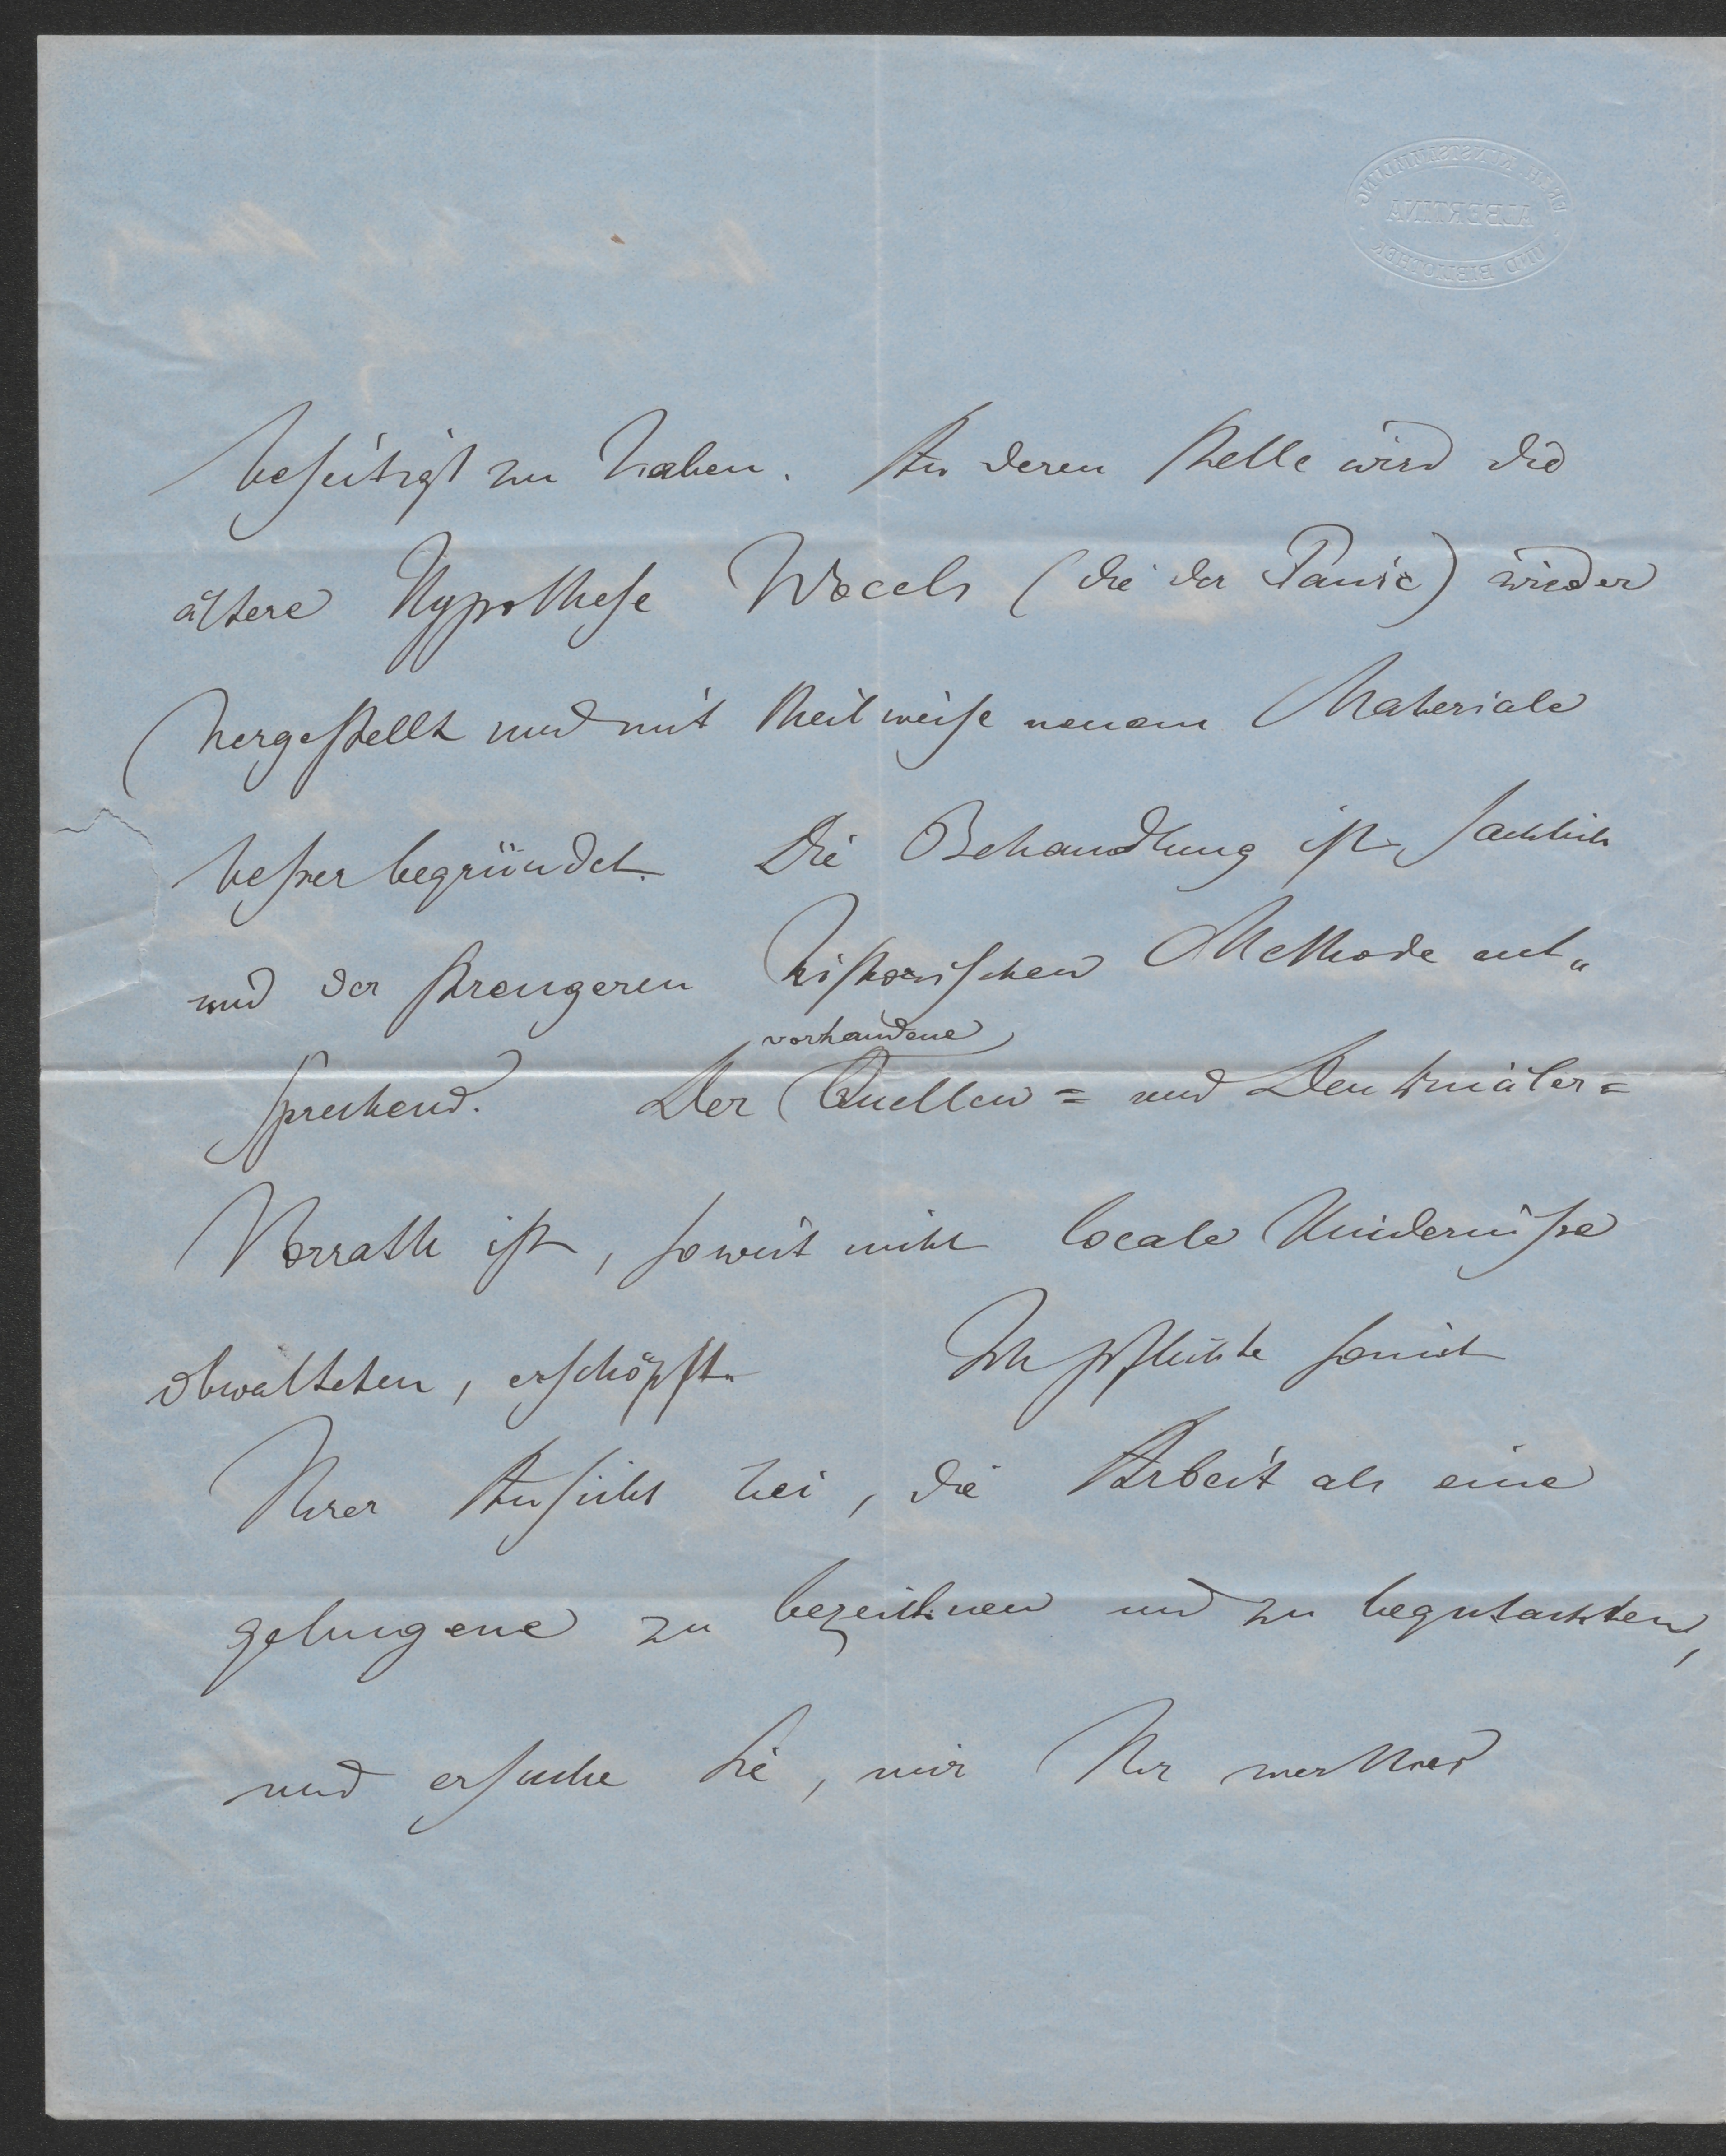 ERZH. KUNSTSAMMLUNG
ALBERTINA
UND BIBLIOTHEK
beseitigt zu haben. An deren Stelle wird die
ältere Hypothese Wocels (die der Panić) wieder
hergestellt und mit theilweise neuem Materiale
besser begründet. Die Behandlung ist sachlich
und der strengeren historischen Methode ent„
vorhandene
sprechend. Der Quellen= und Denkmäler=
Vorrath ist, soweit nicht locale Hindernisse
obwalteten, erschöpft. Ich pflichte somit
Ihrer Ansicht bei, die Arbeit als eine
gelungene zu bezeichnen und zu begutachten,
und ersuche Sie, mir Ihr werthes